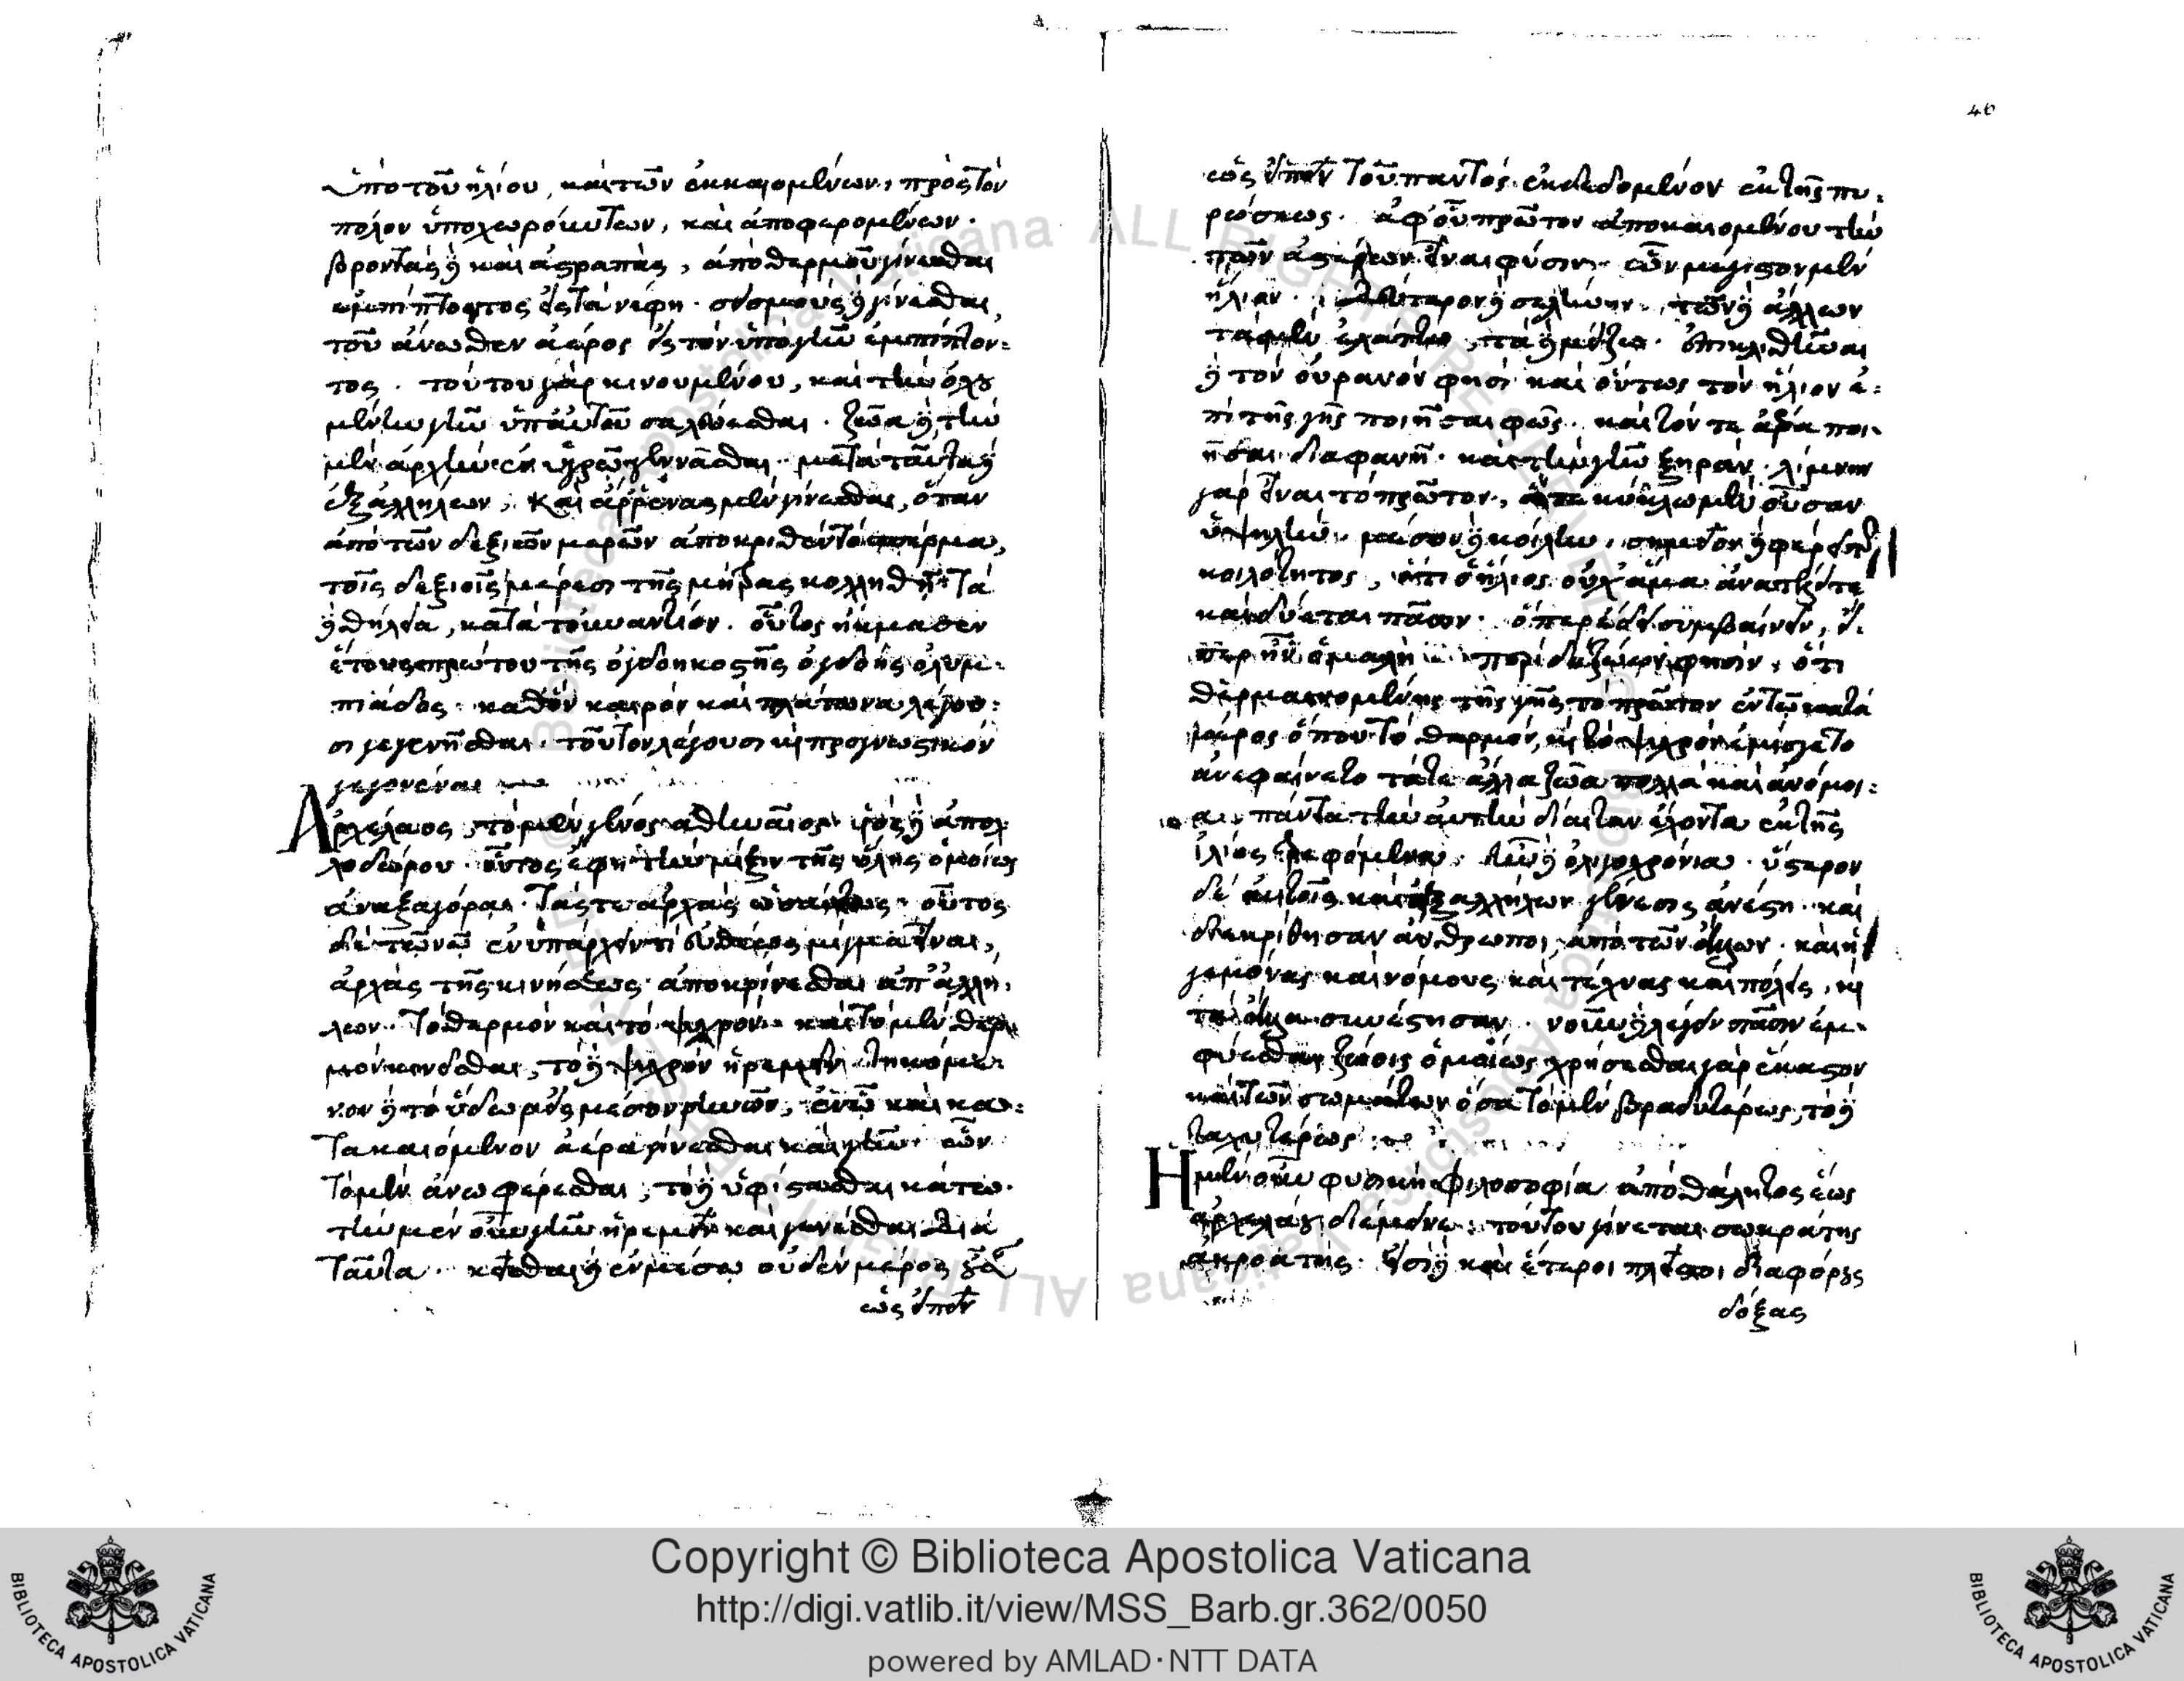 ὑπὸ τοῦ ἡλίου, καὶ τῶν ἐκκαιομένων, πρὸς τὸν
πόλον ὑποχωρούντων, καὶ ἀποφερομένων.
βροντὰς δὲ καὶ ἀστραπὰς, ἀπὸ θερμοῦ γίνεσθαι
ἐμπίπτοντος εἰς τὰ νέφη. σεισμοὺς δὲ γίνεσθαι,
τοῦ ἄνωθεν ἀέρος εἰς τὸν ὑπὸ γῆν ἐμπίπτον-
τος. τούτου γὰρ κινουμένου, καὶ τὴν ὀχου
μένην γῆν ὑπ' αὐτοῦ σαλεύεσθαι. ζῶα δὲ τὴν
μὲν ἀρχὴν ἐν ὑγρῷ γεννᾶσθαι. μετὰ ταῦτα δὲ
ἐξ ἀλλήλων, καὶ ἄρρενας μὲν γίνεσθαι, ὅταν
ἀπὸ τῶν δεξιῶν μερῶν ἀποκριθὲν τὸ σπέρμα,
τοῖς δεξιοῖς μέρεσι τῆς μήτρας κολληθῇ. τὰ
δὲ θήλεα, κατὰ τοὐναντίον. οὗτος ἤκμασεν
ἔτους πρώτου τῆς ὀγδοηκοστῆς ὀγδόης ὀλυμ-
πιάδος. καθ' ὃν καιρὸν καὶ πλάτωνα λέγου-
σι γεγενῆσθαι. τοῦτον λέγουσι καὶ προγνωστικὸν
γεγονέναι
Ἀρχέλαος τὸ μὲν γένος ἀθηναῖος υἱὸς δὲ ἀπολ
λοδώρου. οὗτος ἔφη τὴν μίξιν τῆς ὕλης ὁμοίως
ἀναξαγόρᾳ. τάς τε ἀρχὰς ὡσαύτως. οὗτος
δὲ τῷ νῷ ἐνυπάρχειν τι εὐθέως μίγμα εἶναι,
ἀρχὰς τῆς κινήσεως ἀποκρίνεσθαι ἀπ' ἀλλή-
λων. τὸ θερμὸν καὶ τὸ ψυχρὸν. καὶ τὸ μὲν θερ
μὸν κινεῖσθαι, τὸ δὲ ψυχρὸν ἠρεμεῖν. τηκόμε-
νον δὲ τὸ ὕδωρ εἰς μέσον ῥεῖν, ἐν ᾧ καὶ κα-
τακαιόμενον ἀέρα γίνεσθαι καὶ γῆν. ὧν
τὸ μὲν ἄνω φέρεσθαι, τὸ δὲ ὑφίστασθαι κάτω.
τὴν μὲν οὖν γῆν ἠρεμεῖν καὶ γενέσθαι διὰ
ταῦτα. κεῖσθαι δ' ἐν μέσῳ οὐδὲν μέρος οὖσαν
ὡς εἰπεῖν
46
ὡς εἰπεῖν τοῦ παντός ἐκδεδομένον ἐκ τῆς πυ-
ρώσεως. ἀφ' οὗ πρῶτον ἀποκαιομένου τὴν
τῶν ἀστέρων εἶναι φύσιν. ὧν μέγιστον μὲν
ἥλιον. δεύτερον δὲ σελήνην. τῶν δὲ ἄλλων
τὰ μὲν ἐλάττω, τὰ δὲ μείζω. ἐπικλιθῆναι
δὲ τὸν οὐρανόν φησι καὶ οὕτως τὸν ἥλιον ἐ-
πὶ τῆς γῆς ποιῆσαι φῶς. καὶ τόν τε ἀέρα ποι-
ῆσαι διαφανῆ. καὶ τὴν γῆν ξηράν. λίμνην
γὰρ εἶναι τὸ πρῶτον, ἅτε κύκλῳ μὲν οὖσαν
ὑψηλὴν, μέσον δὲ κοίλην, σημεῖον δὲ φέρει τῆς
κοιλότητος, ὅτι ὁ ἥλιος οὐχ ἅμα ἀνατέλλει τε
καὶ δύεται πᾶσιν. ὅπερ ἔδει συμβαίνειν, εἴ-
περ ἦν ὁμαλή. περὶ δὲ ζώων φησὶν, ὅτι
θερμαινομένης τῆς γῆς τὸ πρῶτον ἐν τῷ κατὰ
μέρος ὅπου τὸ θερμὸν, καὶ τὸ ψυχρὸν ἐμίσγετο
ἀνεφαίνετο τά τε ἄλλα ζῶα πολλὰ καὶ ἀνόμοι-
α. πάντα τὴν αὐτὴν δίαιταν ἔχοντα ἐκ τῆς
ἰλύος τρεφόμενα. ἦν δὲ ὀλιγοχρόνια. ὕστερον
δὲ αὐτοῖς καὶ ἐξ ἀλλήλων γένεσις ἀνέστη. καὶ
διεκρίθησαν ἄνθρωποι, ἀπὸ τῶν ἄλλων. καὶ ἡ
γεμόνας καὶ νόμους καὶ τέχνας καὶ πόλεις, καὶ
τὰ ἄλλα συνέστησαν. νοῦν δὲ λέγει πᾶσιν ἐμ-
φύεσθαι ζώοις ὁμοίως χρήσασθαι γὰρ ἕκαστον
καὶ τῶν σωμάτων ὅσα τὸ μὲν βραδυτέρως, τὸ δὲ
ταχυτέρως
Ἡ μὲν οὖν φυσικὴ φιλοσοφία ἀπὸ θάλητος ἕως
ἀρχελάου διέμεινε. τούτου γίνεται σωκράτης
ἀκροατής. εἰσὶ δὲ καὶ ἕτεροι πλεῖστοι διαφόρους
δόξας
Copyright © Biblioteca Apostolica Vaticana
http://digi.vatlib.it/view/MSS_Barb.gr.362/0050
powered by AMLAD·NTT DATA
BIBLIOTECA APOSTOLICA VATICANA
BIBLIOTECA APOSTOLICA VATICANA